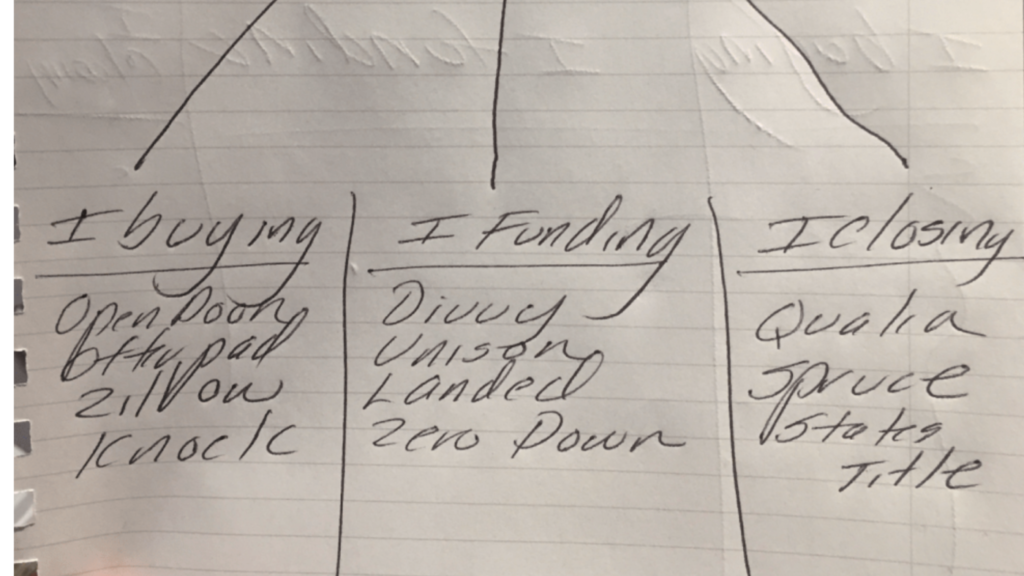 I buying
Open Door
Offerpad
Zillow
Knock
I Funding
Divvy
Unison
Landed
Zero Down
I closing
Qualia
Spruce
States
Title